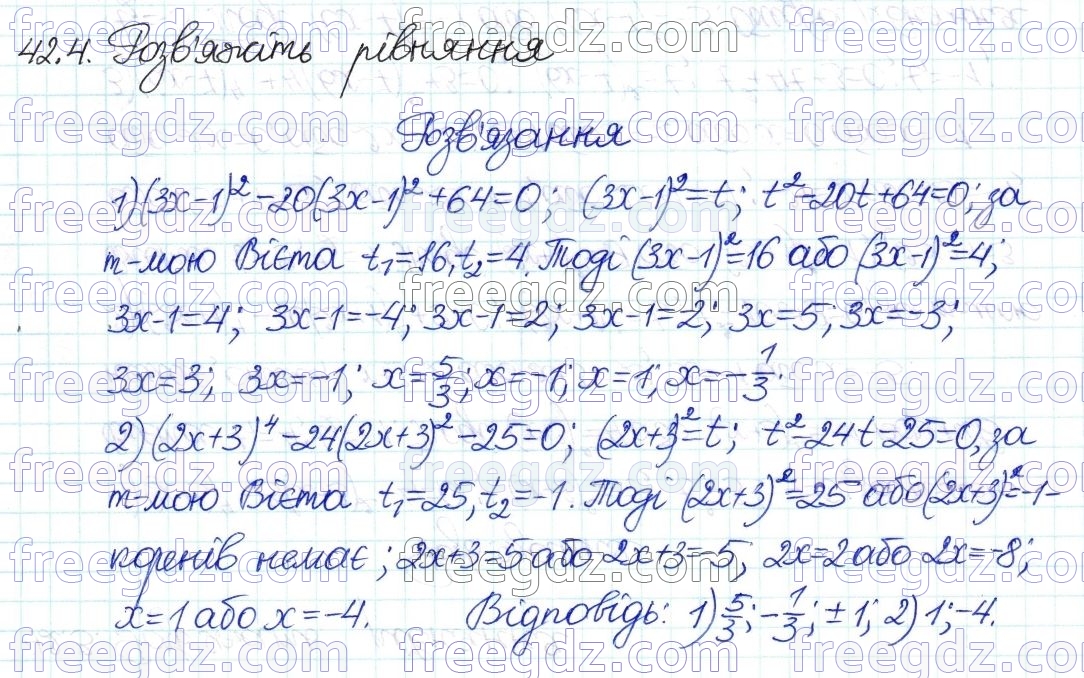 42.4. Розв'яжіть рівняння
Розв'язання
1) (3x-1)² - 20(3x-1)² + 64 = 0; (3x-1)² = t; t² - 20t + 64 = 0; за
т-мою Вієта t₁ = 16, t₂ = 4. Тоді (3x-1)² = 16 або (3x-1)² = 4;
3x-1 = 4; 3x-1 = -4; 3x-1 = 2; 3x-1 = -2; 3x = 5; 3x = -3;
3x = 3; 3x = -1; x = 5/3; x = -1; x = 1; x = -1/3.
2) (2x+3)⁴ - 24(2x+3)² - 25 = 0; (2x+3)² = t; t² - 24t - 25 = 0, за
т-мою Вієта t₁ = 25, t₂ = -1. Тоді (2x+3)² = 25 або (2x+3)² = -1 -
коренів немає; 2x+3 = 5 або 2x+3 = -5; 2x = 2 або 2x = -8;
x = 1 або x = -4. Відповідь: 1) 5/3; -1/3; ±1; 2) 1; -4.